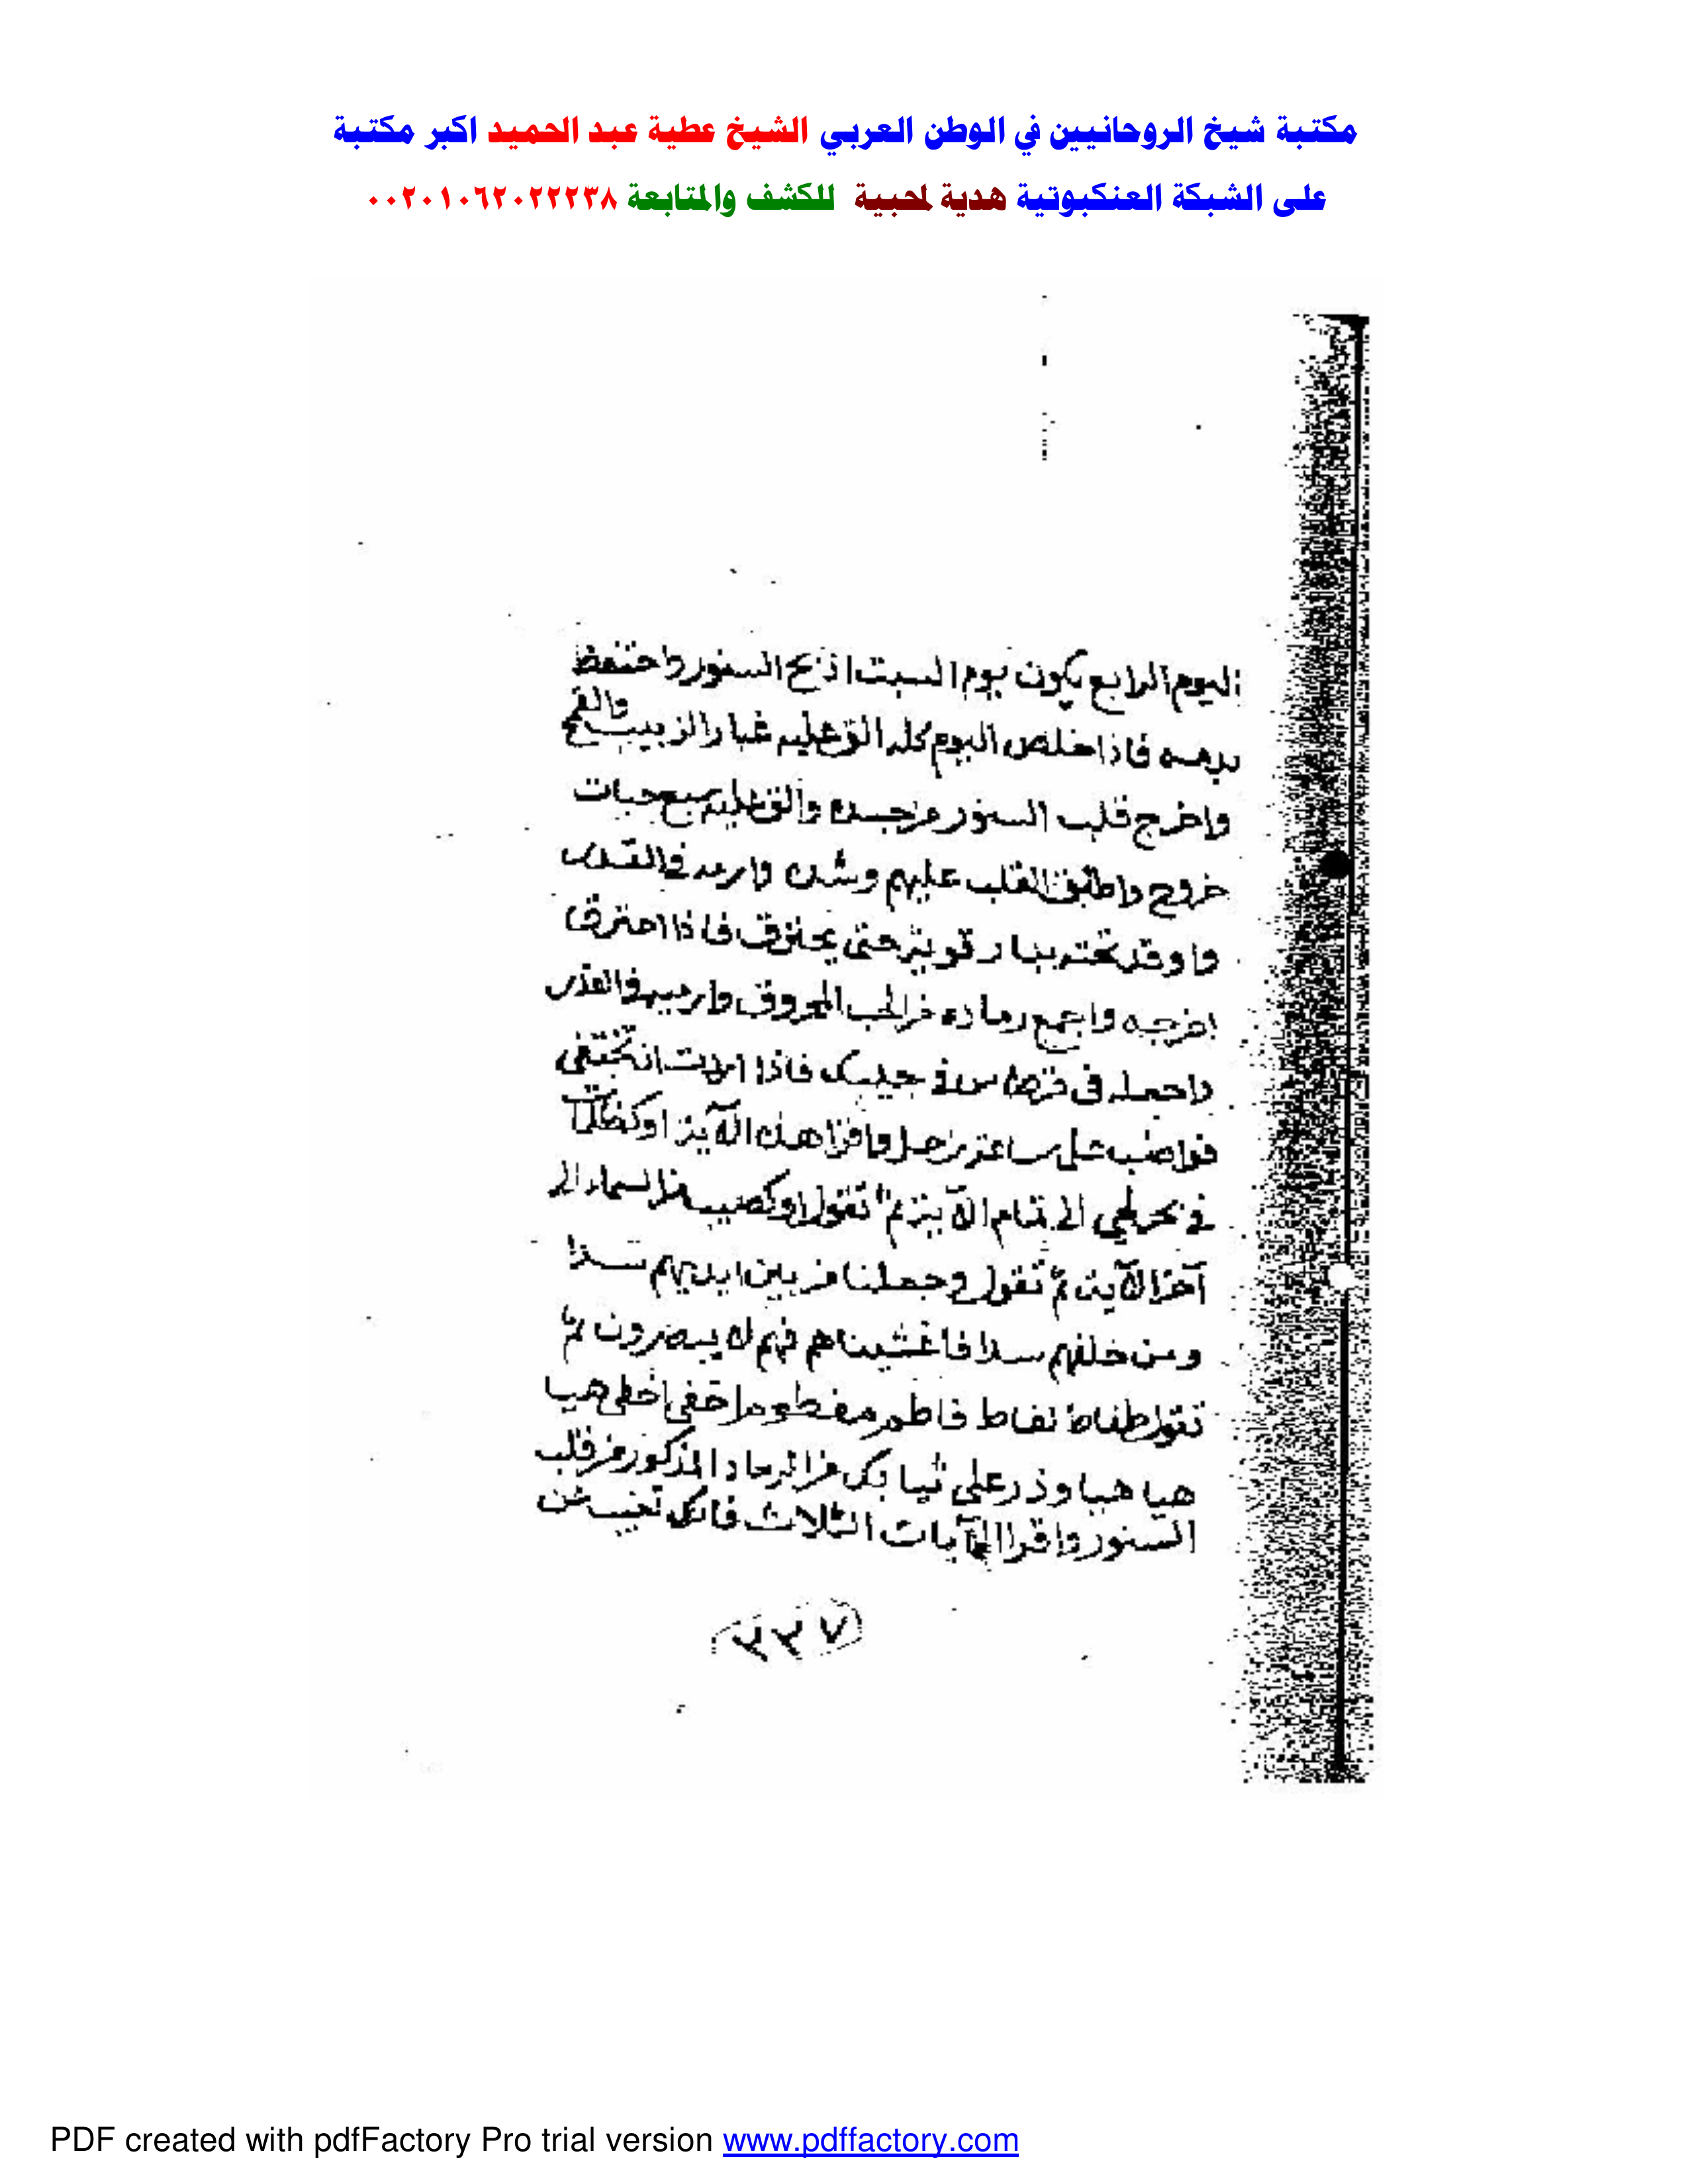 مكتبة شيخ الروحانيين في الوطن العربي الشيخ عطية عبد الحميد اكبر مكتبة
على الشبكة العنكبوتية هدية لمحبية للكشف والمتابعة ٠٠٢٠١٠٦٢٠٢٢٢٣٨
اليوم الرابع يكون يوم السبت اذبح السنور واحتفظ
بدمه فاذا خلص اليوم كله الق عليه غبار الزبيب والقمح
واخرج قلب السنور من جسده والق عليه سبع حبات
خروع واطبق القلب عليهم وشده وارمه في القدر
واوقد تحته بنار قوية حتى يحترق فاذا احترق
اخرجه واجمع رماده من الحب المحروق وارميه في القدر
واجعله في قرطاس في جيبك فاذا اردت ان تختفى
ساعة زحل واقرا هذه الآية اوكظلمات
في بحر لجي الى تمام الآية ثم تقول اوكصيب من السماء الى
آخر الآية ثم تقول وجعلنا من بين ايديهم سدا
ومن خلفهم سدا فاغشيناهم فهم لا يبصرون ثم
تقول طفاط نفاط فاطم مفطوم اخفى اخطى هيا
هيا هيا وذر على ثيابك من الرماد المذكور من قلب
السنور واقرا الآيات الثلاث فانك تغيب عن
٢٣٧
PDF created with pdfFactory Pro trial version www.pdffactory.com